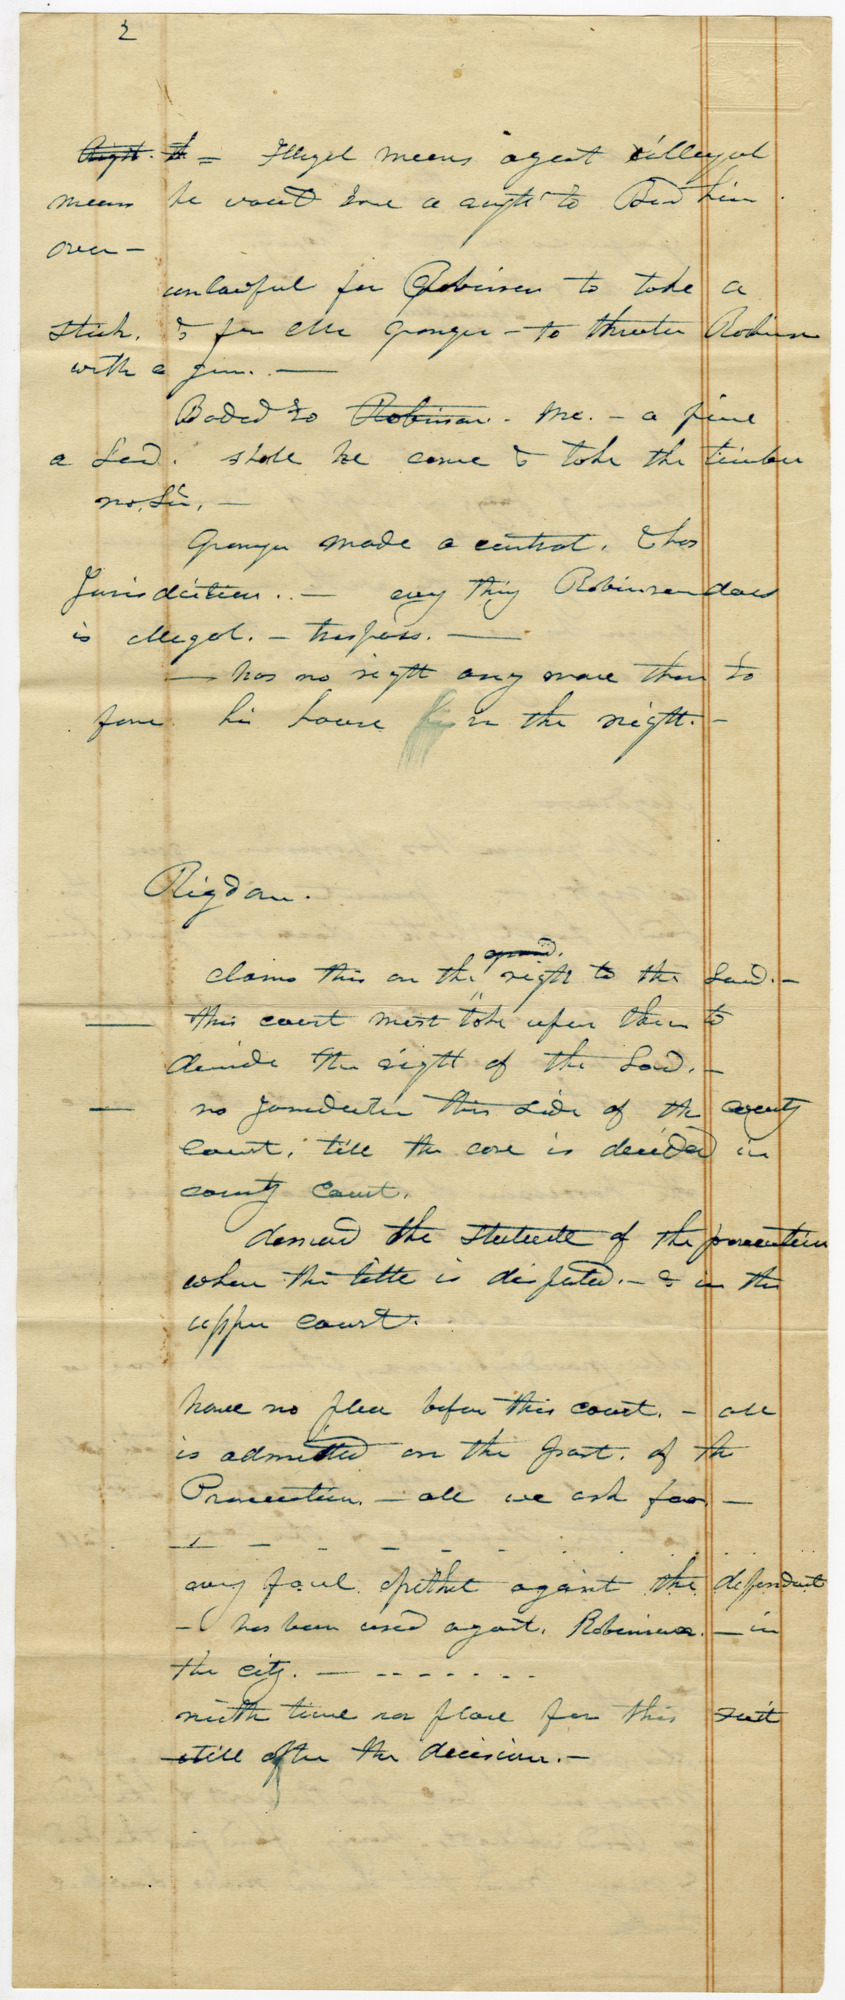 2
Illegal means agent illegal
means he would have a right to Bind him
over —
unlawful for Robinson to take a
stick. & for Mr Granger — to threaten Robinson
with a gun. —
Robinson. Me. — a fine
a Land. shall he come & take the timber
no, Sir, —
Granger made a contract. & has
Jurisdiction. . — any thing Robinson does
is illegal. — trespass. —
— has no right any more than to
his house in the night. —
Rigdon.
ground.
claims this on the right to the Land. —
— this court must take upon them to
decide the right of the Land. —
— no Jurisdiction this side of the county
Court, till the case is decided in
county Court.
demand the statute of the prosecution
when the title is disputed. — & in the
upper court.
have no plea before this court. — all
is admitted on the part. of the
Prosecution. — all we ask for —
any foul epithet against the defendant
— has been used against. Robinson. — in
the city. — - - - - - -
neither time nor place for this suit
till after the decision. —